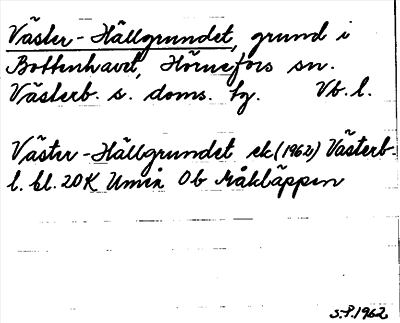 Väster-Hällgrundet, grund i
Bottenhavet, Hörnefors sn.
Västerb. s. doms. tg. Vb. l.
Väster-Hällgrundet ek(1962) Västerb.
l. bl. 20K Umeå Ob Måkläppen
S.P.1962